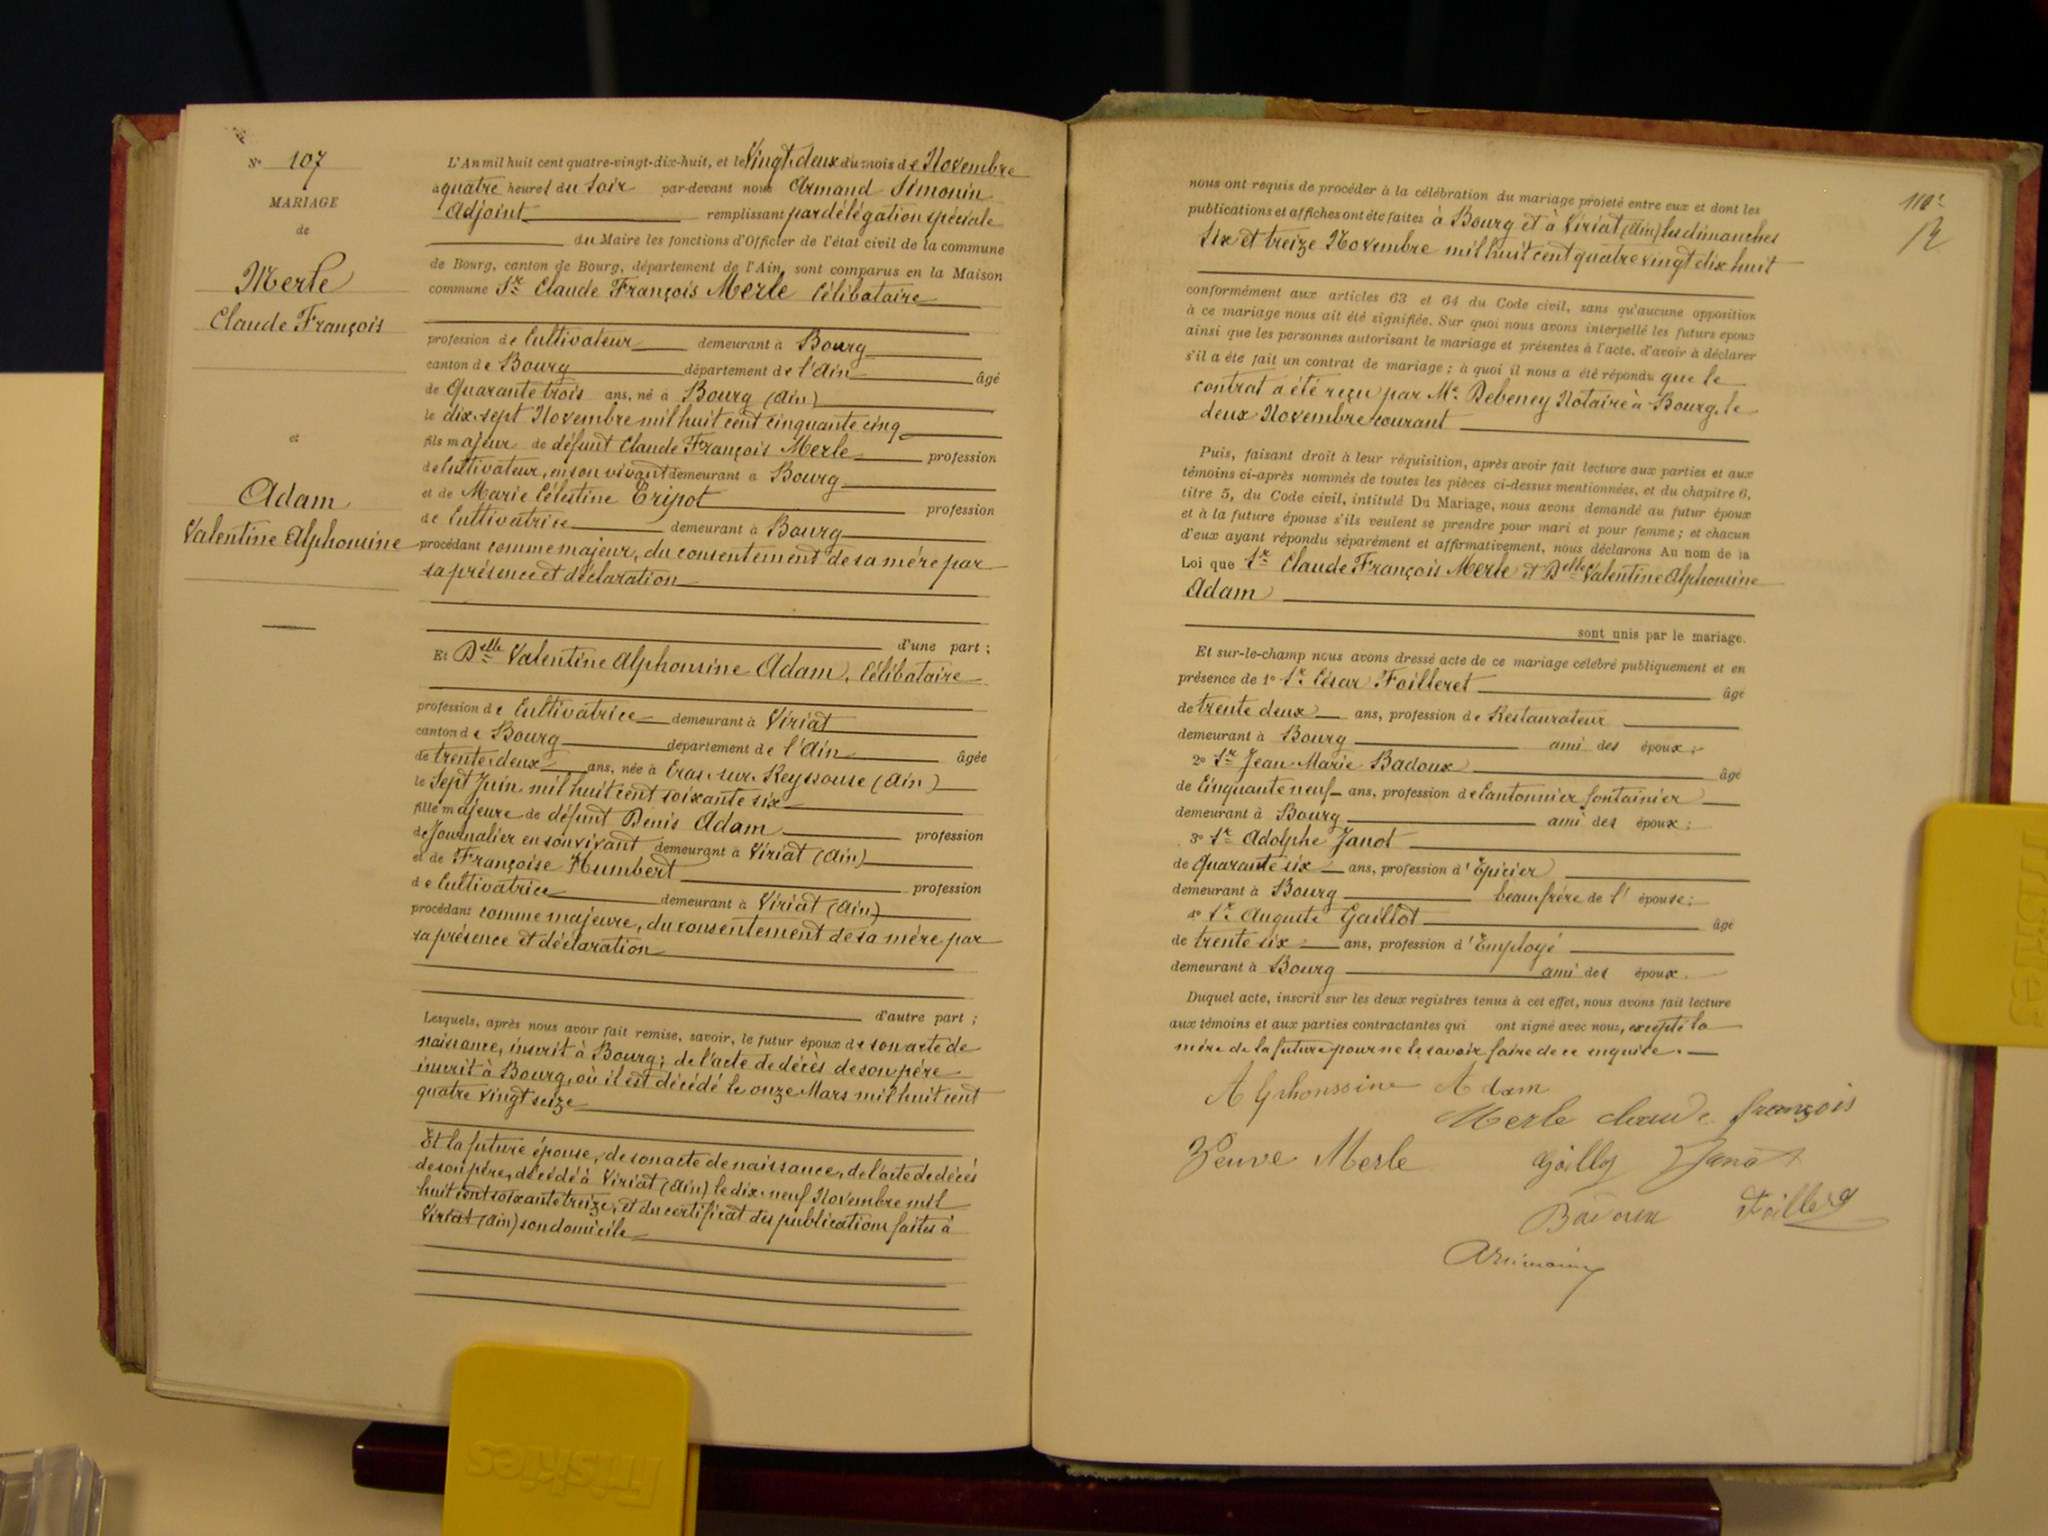 N° 107
MARIAGE
de
Merle
Claude François
et
Adam
Valentine Alphonsine
L'An mil huit cent quatre-vingt-dix-huit, et le Vingt-deux du mois de Novembre
à quatre heures du soir par-devant nous Armand Simonin
Adjoint remplissant par délégation spéciale
du Maire les fonctions d'Officier de l'état civil de la commune
de Bourg, canton de Bourg, département de l'Ain, sont comparus en la Maison
commune Sr Claude François Merle Célibataire
profession de Cultivateur demeurant à Bourg
canton de Bourg département de l'Ain âgé
de Quarante trois ans, né à Bourg (Ain)
le dix-sept Novembre mil huit cent cinquante cinq
fils majeur de défunt Claude François Merle profession
de Cultivateur, en son vivant demeurant à Bourg
et de Marie Célestine Tripot profession
de Cultivatrice demeurant à Bourg
procédant comme majeur, du consentement de sa mère par
sa présence et déclaration
d'une part ;
Et Delle Valentine Alphonsine Adam, Célibataire
profession de Cultivatrice demeurant à Viriat
canton de Bourg département de l'Ain âgée
de trente-deux ans, née à Cras-sur-Reyssouse (Ain)
le Sept Juin mil huit cent soixante six
fille majeure de défunt Denis Adam profession
de Journalier en son vivant demeurant à Viriat (Ain)
et de Françoise Humbert profession
de Cultivatrice demeurant à Viriat (Ain)
procédant comme majeure, du consentement de sa mère par
sa présence et déclaration
d'autre part ;
Lesquels, après nous avoir fait remise, savoir, le futur époux de son acte de
naissance, inscrit à Bourg ; de l'acte de décès de son père
inscrit à Bourg, où il est décédé le onze Mars mil huit cent
quatre vingt seize
Et la future épouse, de son acte de naissance, de l'acte de décès
de son père, décédé à Viriat (Ain) le dix-neuf Novembre mil
huit cent soixante treize, et du certificat des publications faites à
Viriat (Ain) son domicile
110e
nous ont requis de procéder à la célébration du mariage projeté entre eux et dont les
publications et affiches ont été faites à Bourg et à Viriat (Ain) les dimanches
six et treize Novembre mil huit cent quatre vingt dix huit
conformément aux articles 63 et 64 du Code civil, sans qu'aucune opposition
à ce mariage nous ait été signifiée. Sur quoi nous avons interpellé les futurs époux
ainsi que les personnes autorisant le mariage et présentes à l'acte, d'avoir à déclarer
s'il a été fait un contrat de mariage ; à quoi il nous a été répondu que le
contrat a été reçu par Me Debeney Notaire à Bourg, le
deux Novembre courant
Puis, faisant droit à leur réquisition, après avoir fait lecture aux parties et aux
témoins ci-après nommés de toutes les pièces ci-dessus mentionnées, et du chapitre 6,
titre 5, du Code civil, intitulé Du Mariage, nous avons demandé au futur époux
et à la future épouse s'ils veulent se prendre pour mari et pour femme ; et chacun
d'eux ayant répondu séparément et affirmativement, nous déclarons Au nom de la
Loi que Sr Claude François Merle et Delle Valentine Alphonsine
Adam
sont unis par le mariage.
Et sur-le-champ nous avons dressé acte de ce mariage célébré publiquement et en
présence de 1° Sr César Foilleret âgé
de trente deux ans, profession de Restaurateur
demeurant à Bourg ami des époux ;
2° Sr Jean-Marie Badoux âgé
de Cinquante neuf ans, profession de Cantonnier fontainier
demeurant à Bourg ami des époux ;
3° Sr Adolphe Janot
de Quarante six ans, profession d'Epicier
demeurant à Bourg beau frère de l'épouse ;
4° Sr Auguste Gaillot âgé
de trente six ans, profession d'Employé
demeurant à Bourg ami des époux.
Duquel acte, inscrit sur les deux registres tenus à cet effet, nous avons fait lecture
aux témoins et aux parties contractantes qui ont signé avec nous, excepté la
mère de la future pour ne le savoir faire de ce enquise.
Alphonssine Adam
Merle claude françois
Veuve Merle
Janot
Badoux
Friskies
Friskies